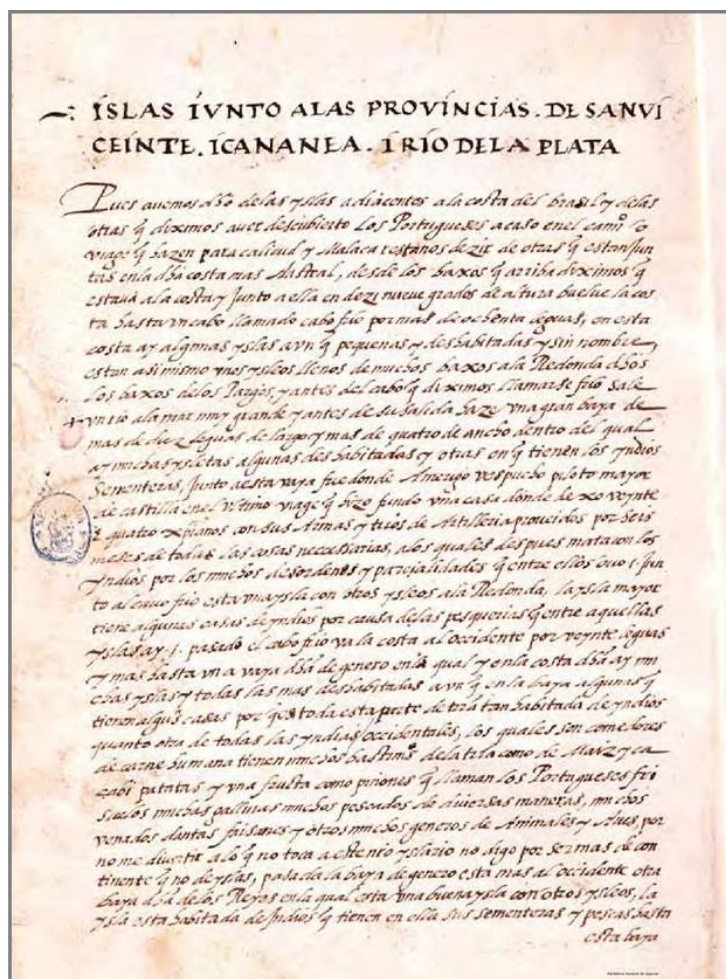 —: ISLAS IVNTO ALAS PROVINCIAS. DE SANVI
CEINTE. ICANANEA. I RIO DELA PLATA
Pues auemos dho delas yslas adiacentes ala costa del brasil y delas
otras q̃ diximos auer descubierto Los Portugueses acaso enel camiº o
viage q̃ hazen para calicud y Malaca restanos dezir de otras q̃ estan Jun
tas enla dha costa mas Austral, desde los baxos q̃ arriba diximos q̃
estauã ala costa y Junto a ella en dezi nueue grados de altura buelue la cos
ta hasta vn cabo llamado cabo frio por mas de ochenta leguas, en esta
costa ay algunas yslas avn q̃ pequenas y deshabitadas y sin nombre,
estan asimismo vnos ysleos llenos de muchos baxos ala Redonda dhos
los baxos delos Pargos, y antes del cabo q̃ diximos llamarse frio sale
+ vn rio ala mar muy grande y antes de su salida haze vna gran baya de
mas de diez leguas de largo y mas de quatro de ancho dentro del qual
ay muchas ysletas algunas deshabitadas y otras en q̃ tienen los yndios
Sementeras, Junto a esta vaya fue donde Amerigo vespucho piloto mayor
de castilla enel vltimo viage q̃ hizo fundo vna casa donde dexo veynte
i quatro xp̃ianos con sus Armas y tiros de Artilleria proueidos por seis
meses de todas las cosas necessarias, alos quales despues mataron los
yndios por los muchos desordenes y parcialidades q̃ entre ellos ouo .i. Jun
to al cauo frio esta vna ysla con otros ysleos ala Redonda, la ysla mayor
tiene algunas casas de yndios por causa delas pesquerias q̃ entre aquellas
yslas ay .i. pasado el cabo frio va la costa al occidente por veynte leguas
y mas hasta vn a vaya dha de genero enla qual y enla costa dha ay mu
chas yslas y todas las mas deshabitadas avn q̃ en la baya algunas q̃
tienen algũs casas por q̃ es toda esta parte de trã tan habitada de yndios
quanto otra de todas las yndias occidentales, los quales son comedores
de carne humana tienen muchos bastimºs dela trã como de Maiz y ca
cabi patatas y vna fructa como piñones q̃ llaman los Portugueses fri
suelos muchas gallinas muchos pescados de diuersas maneras, muchos
venados dantas faisanes y otros muchos generos de Animales y Aues, por
no me diuertir alo q̃ no toca a este mio yslario no digo por ser mas de con
tinente q̃ no de yslas, pasada la baya de genero esta mas al occidente otra
baya dha delos Reyes enla qual esta vna buena ysla con otros ysleos, la
ysla esta habitada de Indios q̃ tienen en ella sus sementeras y pescas hasta
esta baya